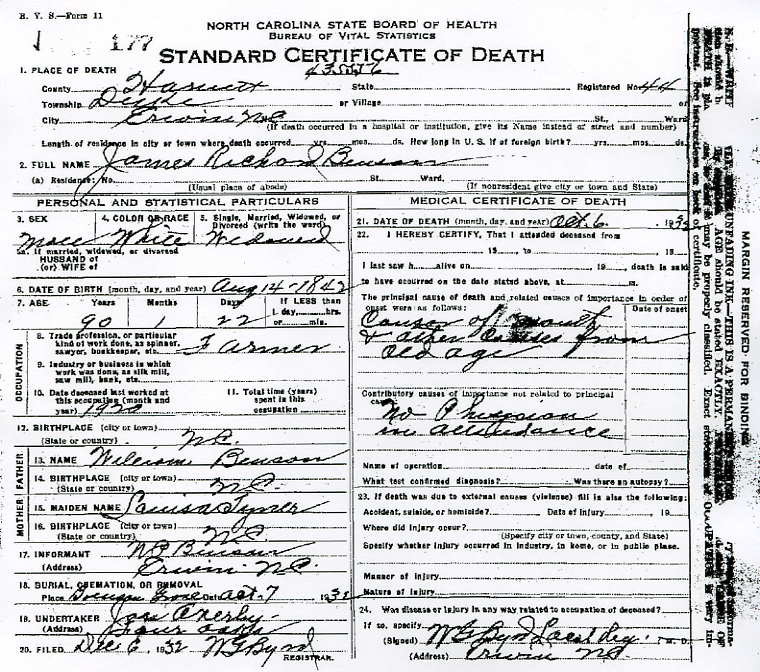 R. V. S.—Form 11
NORTH CAROLINA STATE BOARD OF HEALTH
BUREAU OF VITAL STATISTICS
177
STANDARD CERTIFICATE OF DEATH
1. PLACE OF DEATH
County Harnett State Registered No. 44
Township Duke or Village or
City Erwin NC St., Ward.
(If death occurred in a hospital or institution, give its Name instead of street and number)
Length of residence in city or town where death occurred yrs. mos. ds. How long in U. S. if of foreign birth? yrs. mos. ds.
2. FULL NAME James Richard Benson
(a) Residence: No. St. Ward.
(Usual place of abode) (If nonresident give city or town and State)
PERSONAL AND STATISTICAL PARTICULARS
3. SEX 4. COLOR OR RACE 5. Single, Married, Widowed, or Divorced (write the word)
Male White Widowed
5a. If married, widowed, or divorced
HUSBAND of
(or) WIFE of
6. DATE OF BIRTH (month, day, and year) Aug 14-1842
7. AGE Years Months Days If LESS than
1 day, hrs.
90 1 22 or min.
OCCUPATION
8. Trade, profession, or particular
kind of work done, as spinner,
sawyer, bookkeeper, etc. Farmer
9. Industry or business in which
work was done, as silk mill,
saw mill, bank, etc.
10. Date deceased last worked at
this occupation (month and
year) 1920
11. Total time (years)
spent in this
occupation
12. BIRTHPLACE (city or town)
(State or country) NC.
FATHER
13. NAME William Benson
14. BIRTHPLACE (city or town)
(State or country) NC
MOTHER
15. MAIDEN NAME Louisa Tyner
16. BIRTHPLACE (city or town)
(State or country) NC.
17. INFORMANT Benson
(Address) Erwin NC.
18. BURIAL, CREMATION, OR REMOVAL
Place Grove Date Oct 7 1932
19. UNDERTAKER
(Address) Four Oaks
20. FILED Dec 6 1932 W G Byrd
REGISTRAR.
MEDICAL CERTIFICATE OF DEATH
21. DATE OF DEATH (month, day, and year) Oct. 6 1932
22. I HEREBY CERTIFY, That I attended deceased from
19 , to 19
I last saw h alive on 19 , death is said
to have occurred on the date stated above, at m.
The principal cause of death and related causes of importance in order of
onset were as follows: Date of onset
Cancer of mouth
& other causes from
old age
Contributory causes of importance not related to principal
cause:
No Physician
in attendance
Name of operation date of
What test confirmed diagnosis? Was there an autopsy?
23. If death was due to external causes (violence) fill in also the following:
Accident, suicide, or homicide? Date of injury 19
Where did injury occur?
(Specify city or town, county, and State)
Specify whether injury occurred in industry, in home, or in public place.
Manner of injury
Nature of injury
24. Was disease or injury in any way related to occupation of deceased?
If so, specify
(Signed) W G Byrd M. D.
(Address) Erwin NC.
MARGIN RESERVED FOR BINDING